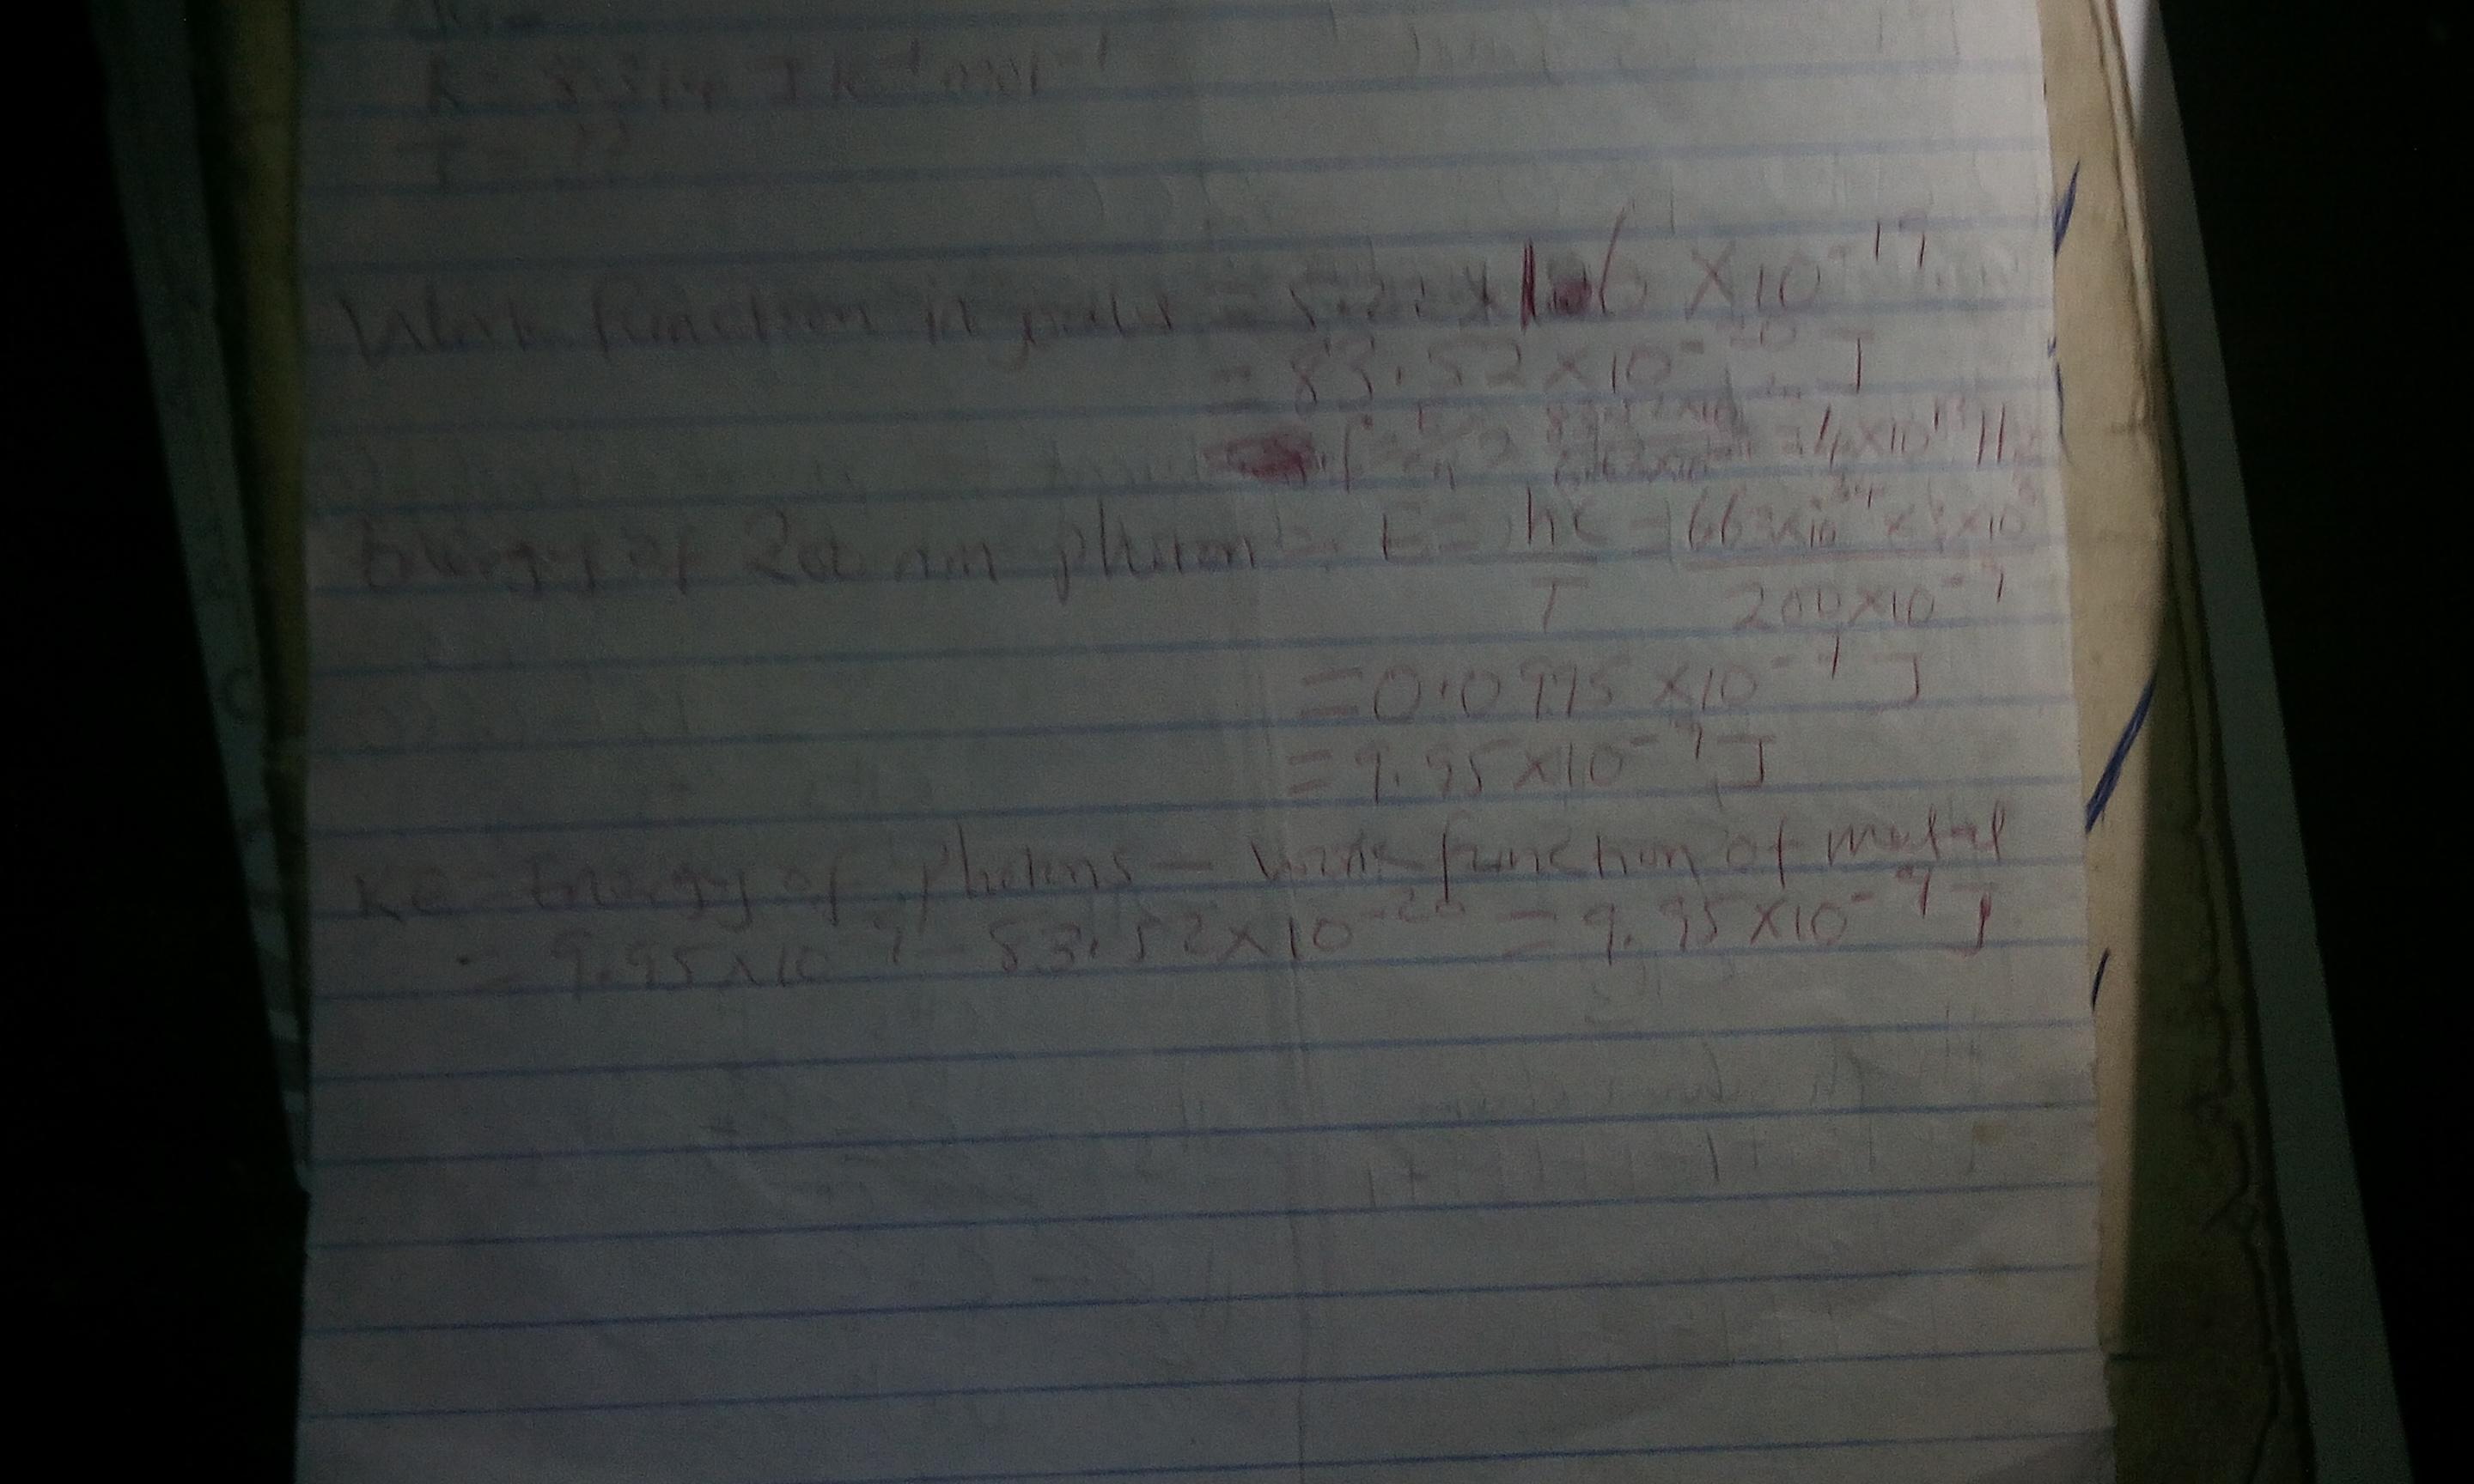 R = 8.314 J K⁻¹ mol⁻¹
T = ??
Work function in joules = 5.22 × 1.6 × 10⁻¹⁹
= 83.52 × 10⁻²⁰ J
= 4 × 10 Hz
Energy of 200 nm photon = E = hc = 6.63 × 10⁻³⁴ × 3 × 10⁸
T 200 × 10⁻⁹
= 0.0995 × 10⁻⁹ J
= 9.95 × 10⁻⁹ J
KE = Energy of photons − Work function of metal
= 9.95 × 10⁻⁹ − 83.52 × 10⁻²⁰ = 9.95 × 10⁻⁹ J